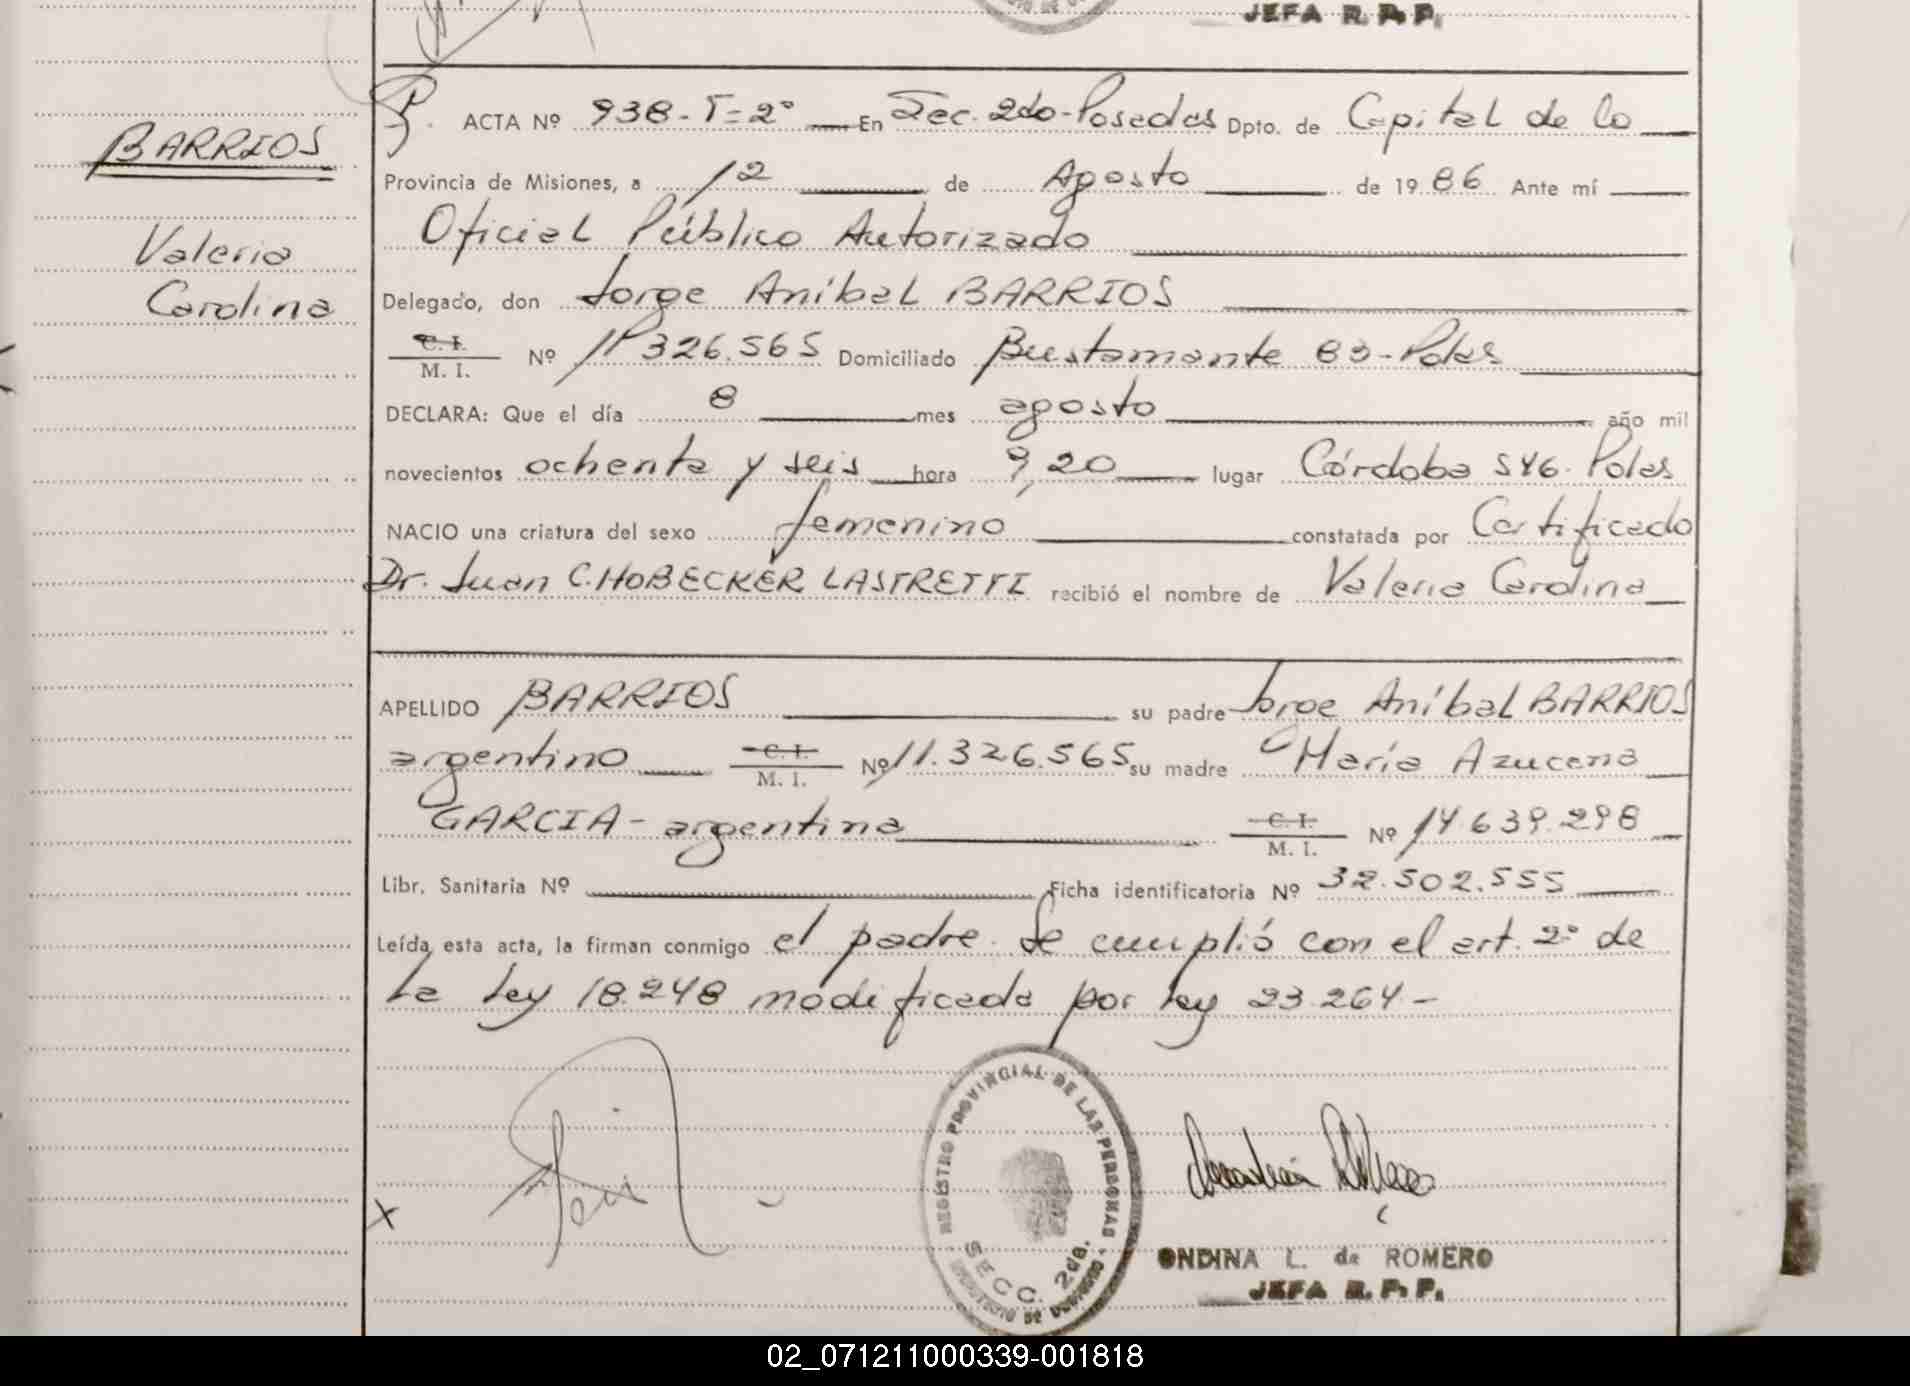 JEFA R. P. P.
BARRIOS
Valeria
Carolina
ACTA Nº 938-T=2º En Sec. 2da-Posadas Dpto. de Capital de la
Provincia de Misiones, a 12 de Agosto de 1986 Ante mí
Oficial Público Autorizado
Delegado, don Jorge Aníbal BARRIOS
C. I.
M. I. Nº 11.326.565 Domiciliado Bustamante 83-Pdas
DECLARA: Que el día 8 mes agosto año mil
novecientos ochenta y seis hora 9,20 lugar Córdoba 546. Pdas
NACIO una criatura del sexo femenino constatada por Certificado
Dr. Juan C. HOBECKER LASTRETTI recibió el nombre de Valeria Carolina
APELLIDO BARRIOS su padre Jorge Aníbal BARRIOS
argentino C. I. M. I. Nº 11.326.565 su madre María Azucena
GARCIA - argentina C. I. M. I. Nº 14.639.298
Libr. Sanitaria Nº Ficha identificatoria Nº 32.502.555
Leída esta acta, la firman conmigo el padre. Se cumplió con el art. 2º de
la ley 18.248 modificada por ley 23.264-
REGISTRO PROVINCIAL DE LAS PERSONAS
SECC. 2da.
ONDINA L. de ROMERO
JEFA R. P. P.
02_071211000339-001818